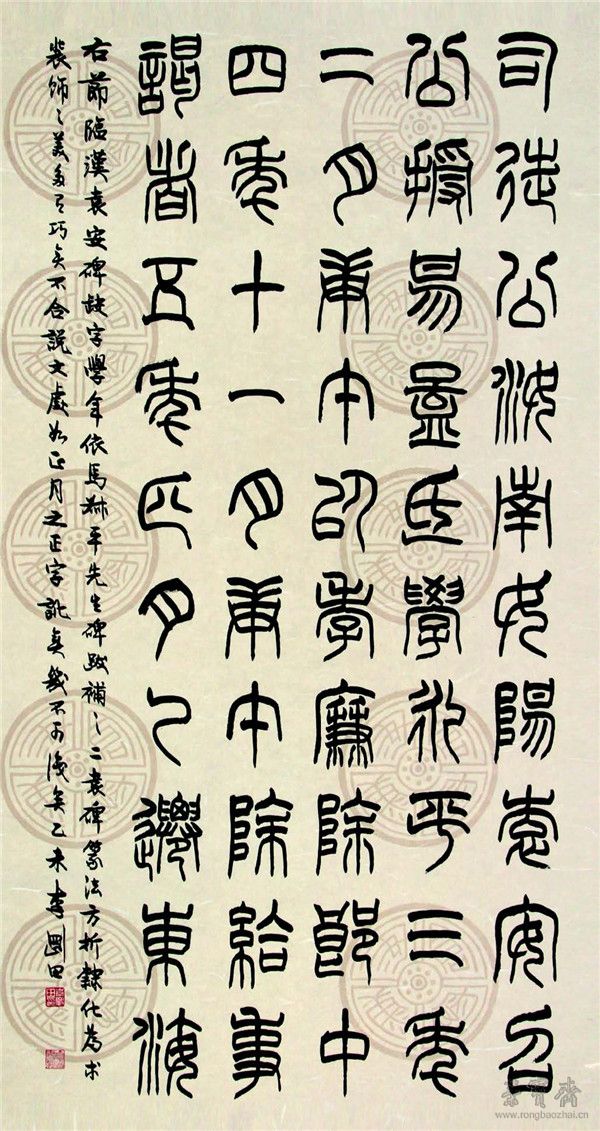 司徒公汝南女陽袁安召
公授易孟氏學永平三年
二月庚午以孝廉除郎中
四年十一月庚午除給事
謁者五年正月乙遷東海
右節臨漢袁安碑缺字學年依馬叔平先生碑跋補之二袁碑篆法方折隸化為求
裝飾之美多有巧矣不合說文處如正月之正字訛矣幾不可識矣乙未李剛田
榮寶齋
www.rongbaozhai.cn